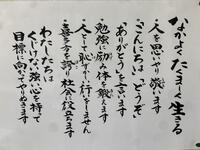 なかよく たくましく 生きる
・人を思いやり敬います
・「こんにちは」「どうぞ」
「ありがとう」を言います
・勉強に励み体を鍛えます
・人として恥ずかしい行をしません
・喜多方を誇り社会に役立ちます
わたしたちは
くじけない強い心を持って
目標に向かってやりぬきます